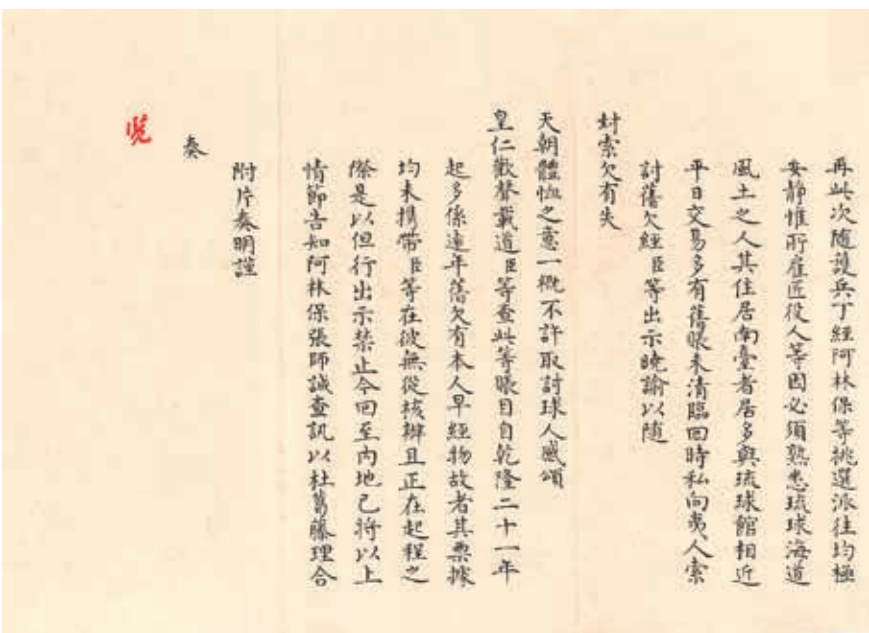 再此次隨護兵丁經阿林保等挑選派往均極
安靜惟所雇匠役人等因必須熟悉琉球海道
風土之人其住居南臺者居多與琉球館相近
平日交易多有舊賬未清臨回時私向夷人索
討舊欠經臣等出示曉諭以隨
封索欠有失
天朝體恤之意一概不許取討球人感頌
皇仁歡聲載道臣等查此等賬目自乾隆二十一年
起多係遠年舊欠有本人早經物故者其票據
均未攜帶臣等在彼無從核辦且正在起程之
際是以但行出示禁止今回至內地已將以上
情節告知阿林保張師誠查訊以杜葛藤理合
附片奏明謹
奏
覽